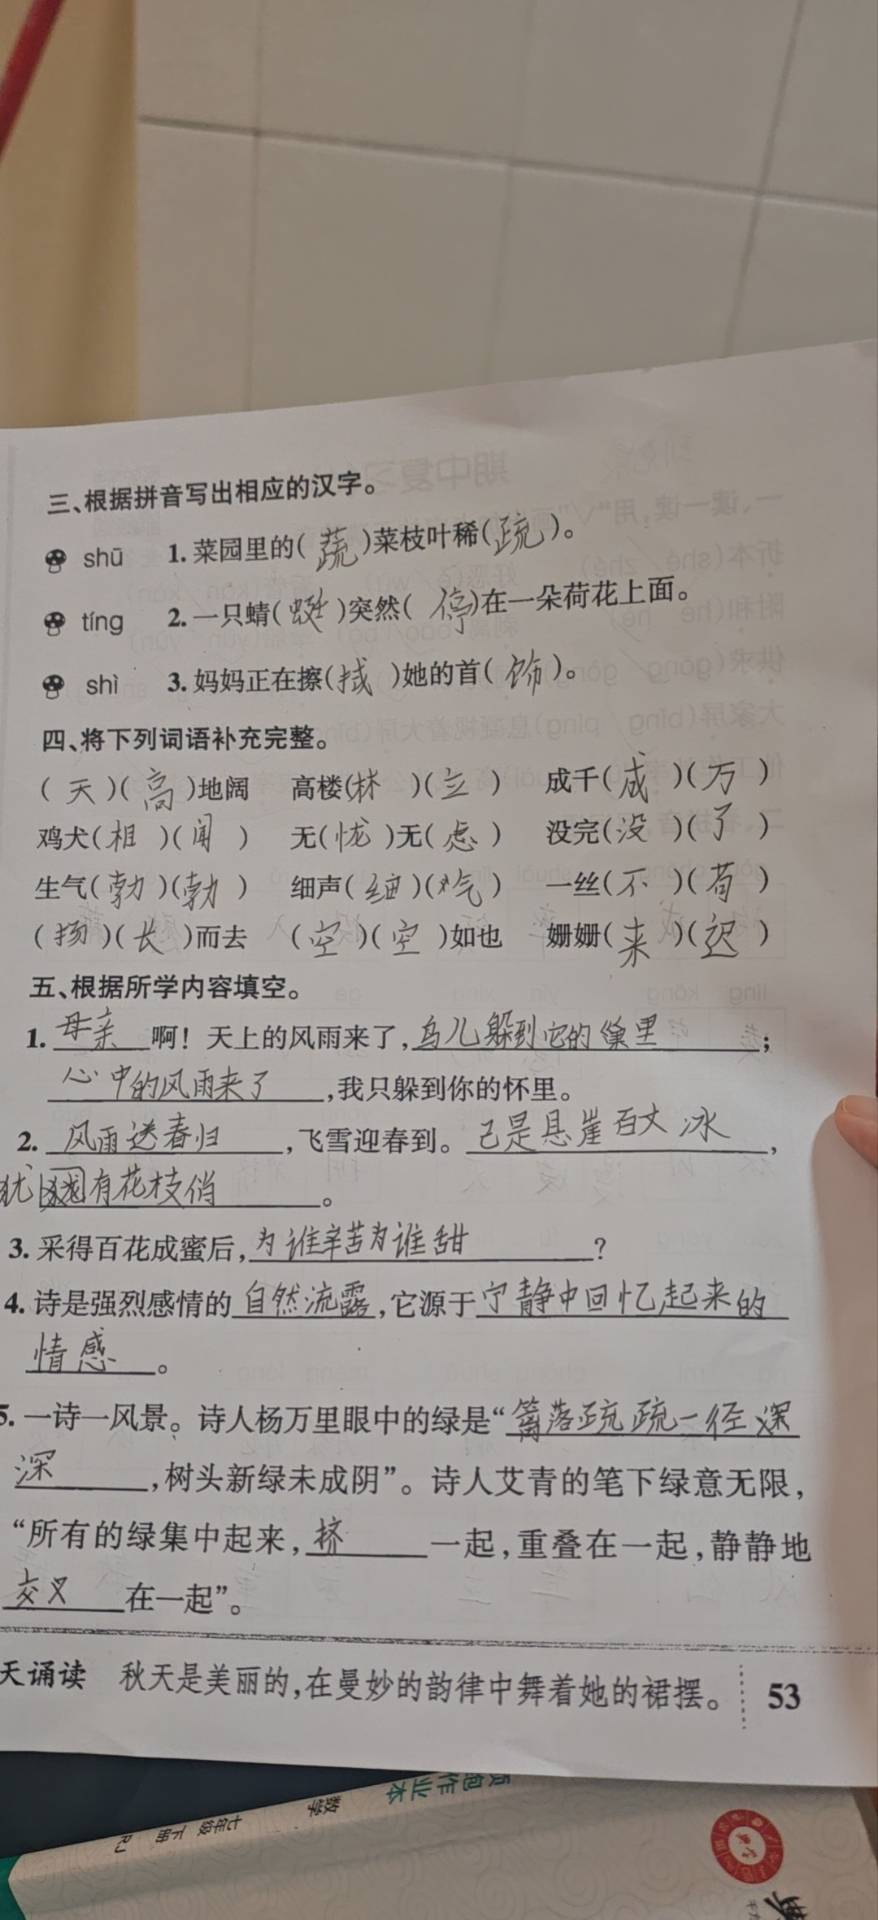 三、根据拼音写出相应的汉字。
shū 1.菜园里的(蔬)菜枝叶稀(疏)。
tíng 2.一只蜻(蜓)突然(停)在一朵荷花上面。
shì 3.妈妈正在擦(拭)她的首(饰)。
四、将下列词语补充完整。
(天)(高)地阔 高楼(林)(立) 成千(成)(万)
鸡犬(相)(闻) 无(忧)无(虑) 没完(没)(了)
生气(勃)(勃) 细声(细)(气) 一丝(不)(苟)
(扬)(长)而去 (空)(空)如也 姗姗(来)(迟)
五、根据所学内容填空。
1.母亲啊!天上的风雨来了,鸟儿躲到它的巢里;
心中的风雨来了,我只躲到你的怀里。
2.风雨送春归,飞雪迎春到。已是悬崖百丈冰,
犹有花枝俏。
3.采得百花成蜜后,为谁辛苦为谁甜?
4.诗是强烈感情的自然流露,它源于宁静中回忆起来的
情感。
5.一诗一风景。诗人杨万里眼中的绿是“篱落疏疏一径深
深,树头新绿未成阴”。诗人艾青的笔下绿意无限,
“所有的绿集中起来,挤一起,重叠在一起,静静地
交叉在一起”。
天诵读 秋天是美丽的,在曼妙的韵律中舞着她的裙摆。 53
作业本
数学
七年级 下册 RJ